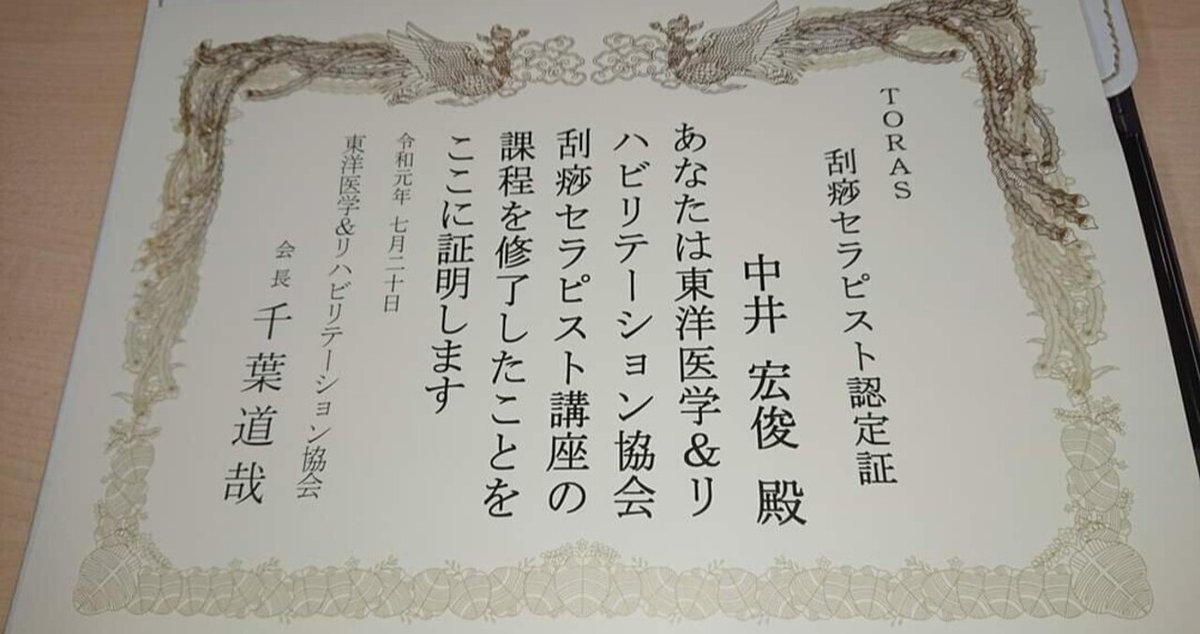 TORAS
刮痧セラピスト認定証
中井 宏俊 殿
あなたは東洋医学&リ
ハビリテーション協会
刮痧セラピスト講座の
課程を修了したことを
ここに証明します
令和元年 七月二十日
東洋医学&リハビリテーション協会
会長 千葉道哉